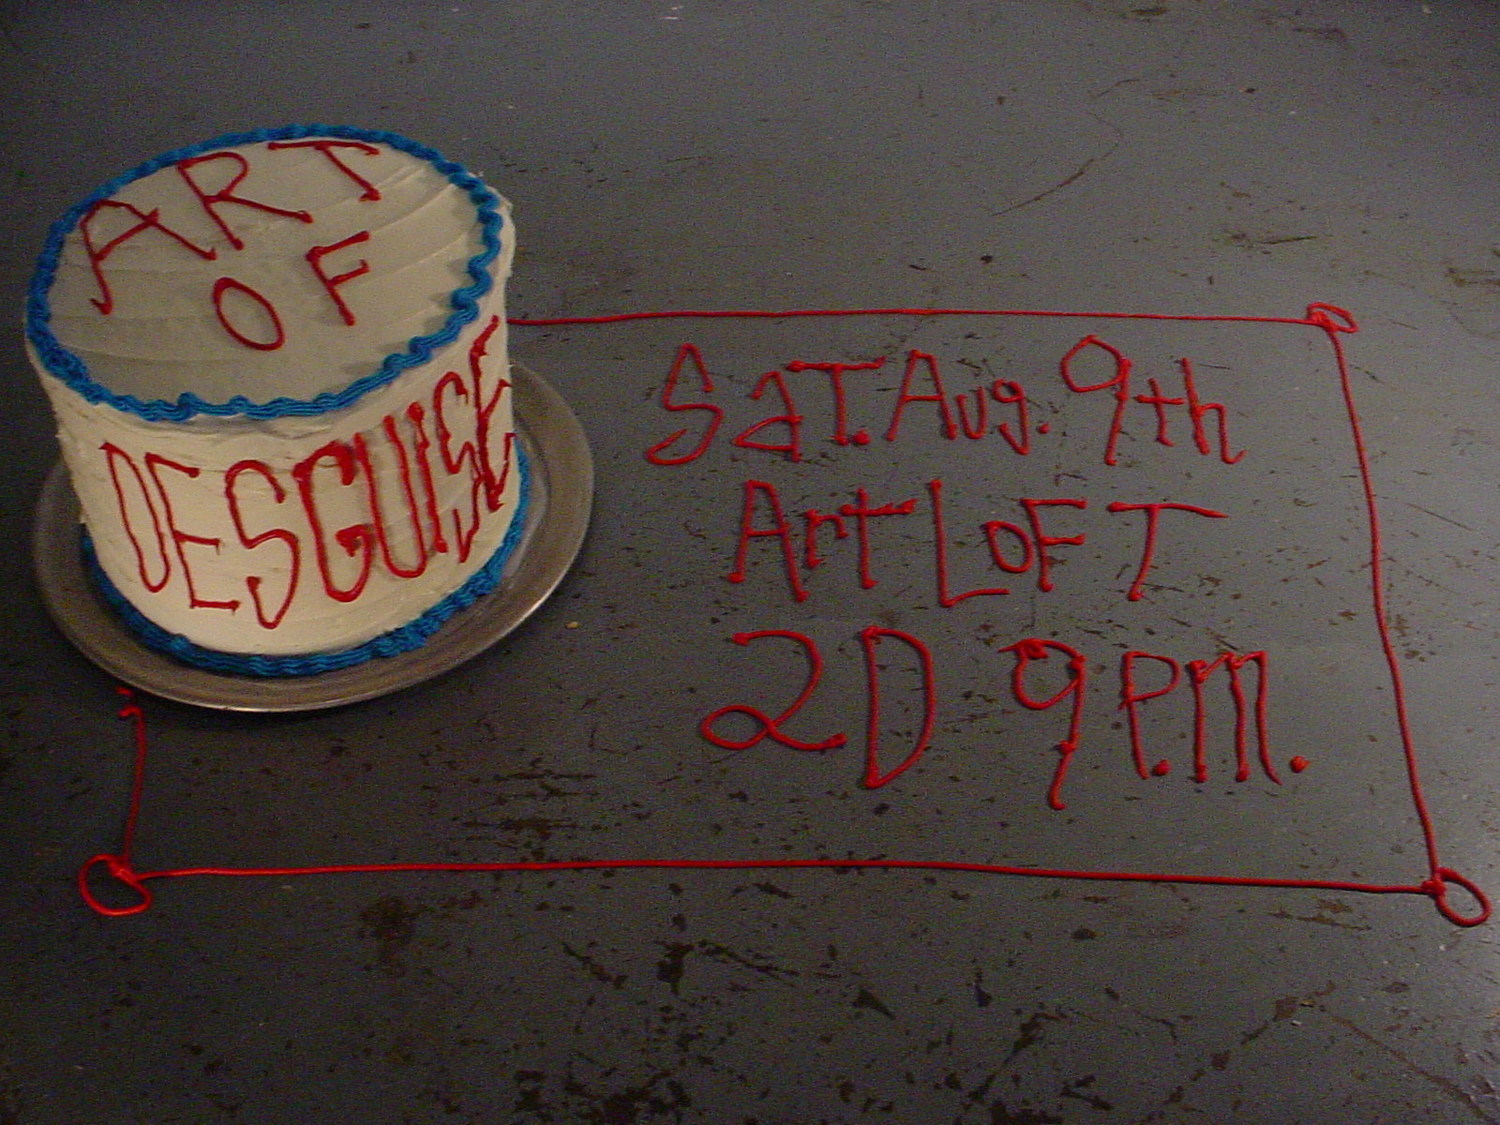 ART
OF
DESGUISE
SaT. Aug. 9th
Art LoFT
2D 9 P.m.